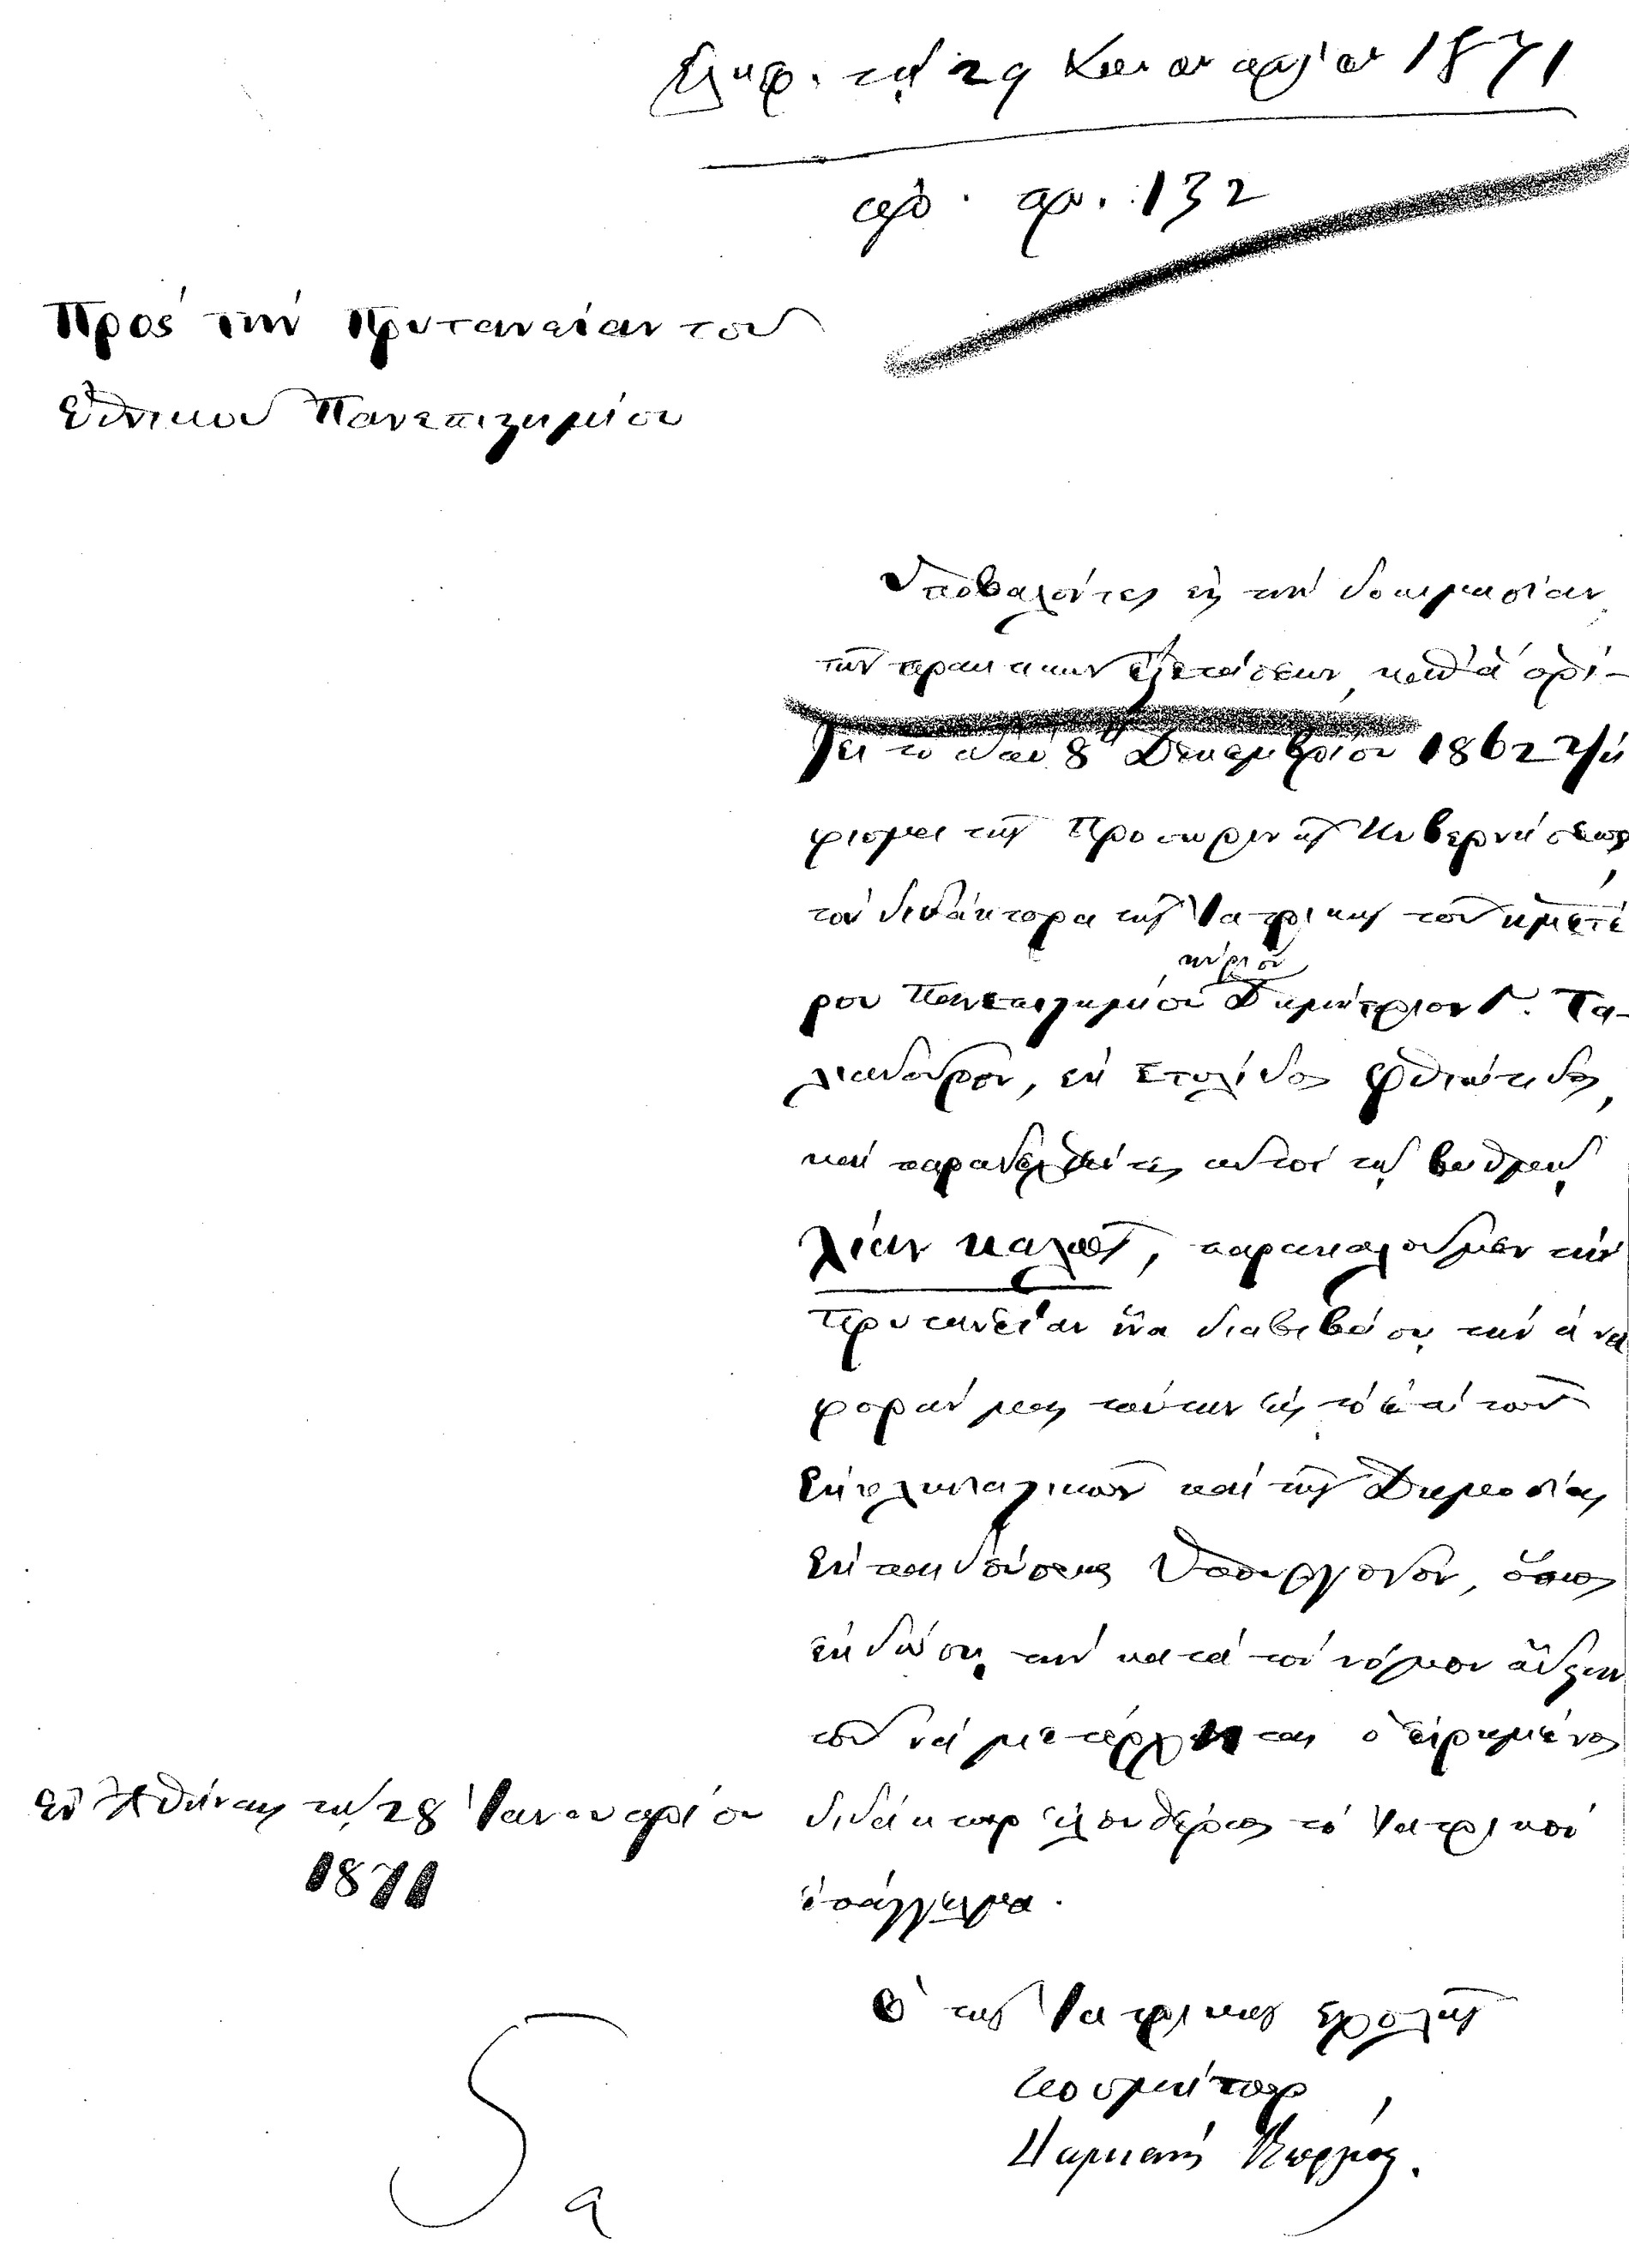 Ἐλήφ. τῇ 29 Ιανουαρίου 1871
πρ. 132
Πρὸς τὴν Πρυτανείαν τοῦ
Ἐθνικοῦ Πανεπιστημίου
Ὑποβαλόντες εἰς τὴν δοκιμασίαν
τῶν πρακτικῶν ἐξετάσεων, καθ' ἃ ὁρί-
ζει τὸ ἀπὸ 8 Δεκεμβρίου 1862 ψή
φισμα τῆς Προσωρινῆς Κυβερνήσεως,
τὸν διδάκτορα τῆς Ἰατρικῆς τοῦ ἡμετέ
κύριον
ρου Πανεπιστημίου Δημήτριον Γ. Τα-
λιαδοῦρον, ἐκ Στυλίδος Φθιώτιδος,
καὶ παραδεχθέντες αὐτὸν τῷ βαθμῷ
λίαν καλῶς, παρακαλοῦμεν τὴν
Πρυτανείαν ἵνα διαβιβάσῃ τὴν ἀνα
φοράν μας ταύτην εἰς τὸ ἐπὶ τῶν
Ἐκκλησιαστικῶν καὶ τῆς Δημοσίας
Ἐκπαιδεύσεως Ὑπουργεῖον, ὅπως
ἐκδώσῃ τὴν κατὰ τὸν νόμον ἄδειαν
τοῦ νὰ μετέρχηται ὁ εἰρημένος
διδάκτωρ ἐλευθέρως τὸ Ἰατρικὸν
ἐπάγγελμα.
Ἐν Ἀθήναις τῇ 28 Ἰανουαρίου
1871
Ὁ τῆς Ἰατρικῆς Σχολῆς
Κοσμήτωρ
Δαμιανὸς Γεωργίου.